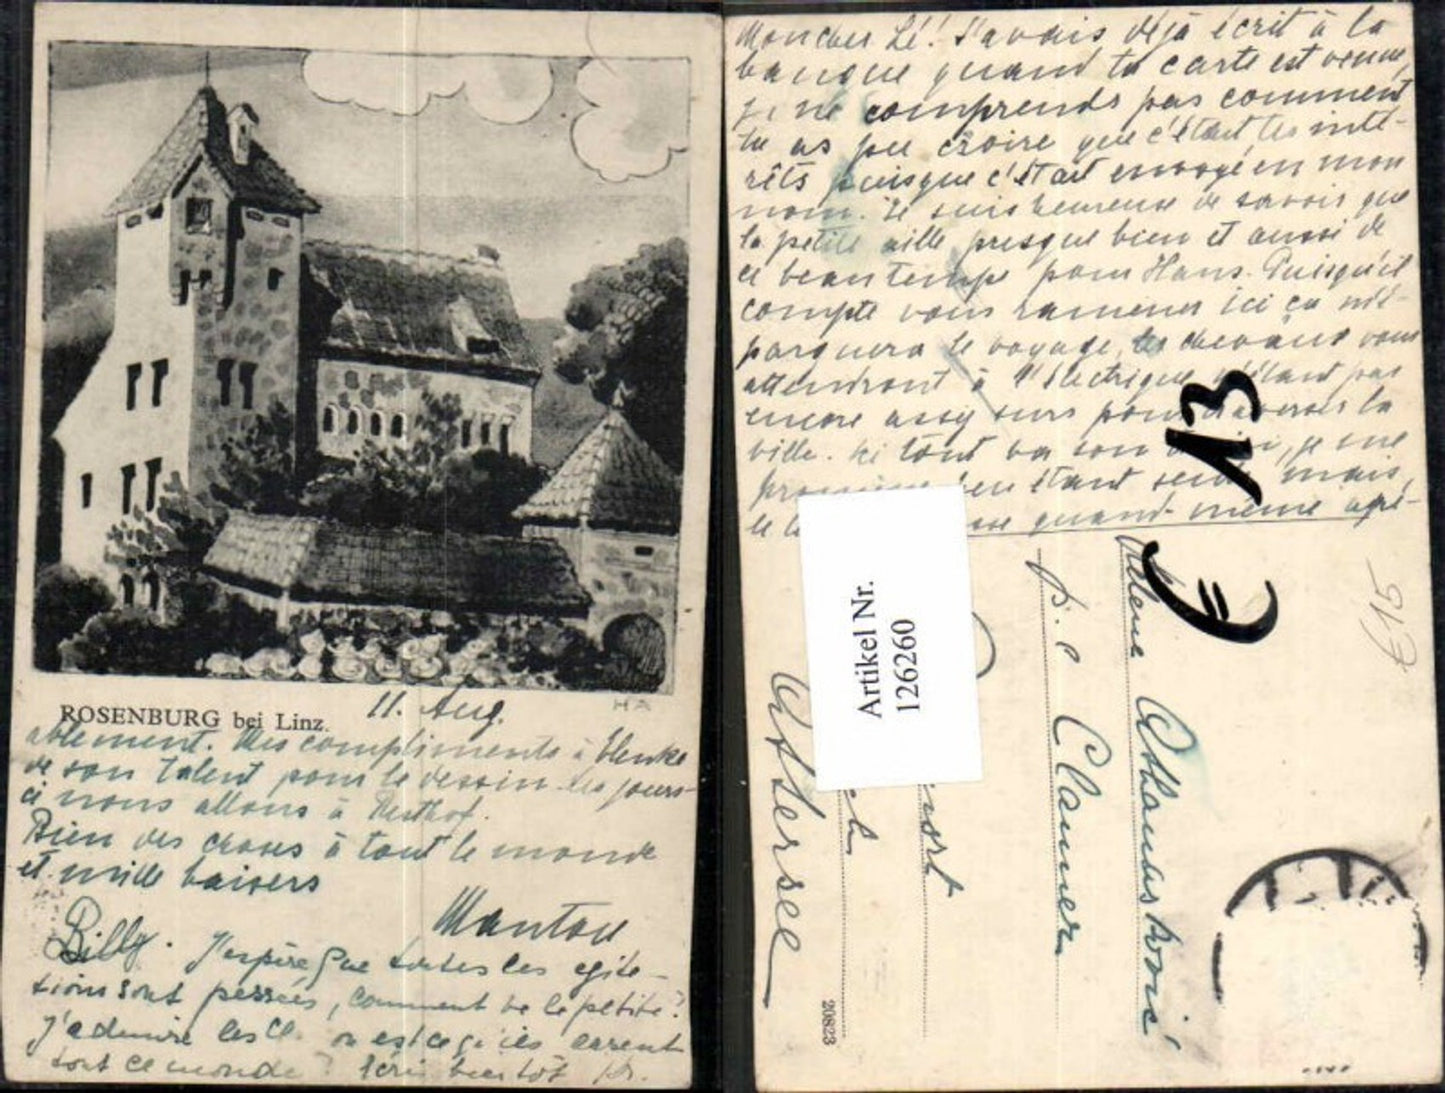 HA
ROSENBURG bei Linz.
11. Aug.
ablement. Mes compliments à
de son talent pour le dessin. Ces jours-
ci nous allons à
Bien des choses à tout le monde
et mille baisers
Manton
Billy. J'espère que toutes les agita-
tions sont passées, comment va la petite?
J'admire les Cl. où est ce qu'ils casent
tout ce monde? écris bientôt
Mon cher Lé! J'avais déjà écrit à la
banque quand ta carte est venue,
je ne comprends pas comment
tu as pu croire que c'était les inté-
rêts puisque c'était envoyé en mon
nom. Je suis heureuse de savoir que
la petite aille presque bien et aussi de
ce beau temps pour Hans. Puisqu'il
compte vous ramener ici ça m'é-
pargnera le voyage, les chevaux vous
attendront à l'électrique n'étant pas
encore assez surs pour traverser la
ville. Ici tout va son je me
étant seule mais
le quand-même agré-
€ 13
€15
Artikel Nr.
126260
p. a Clamer
Attersee
20823